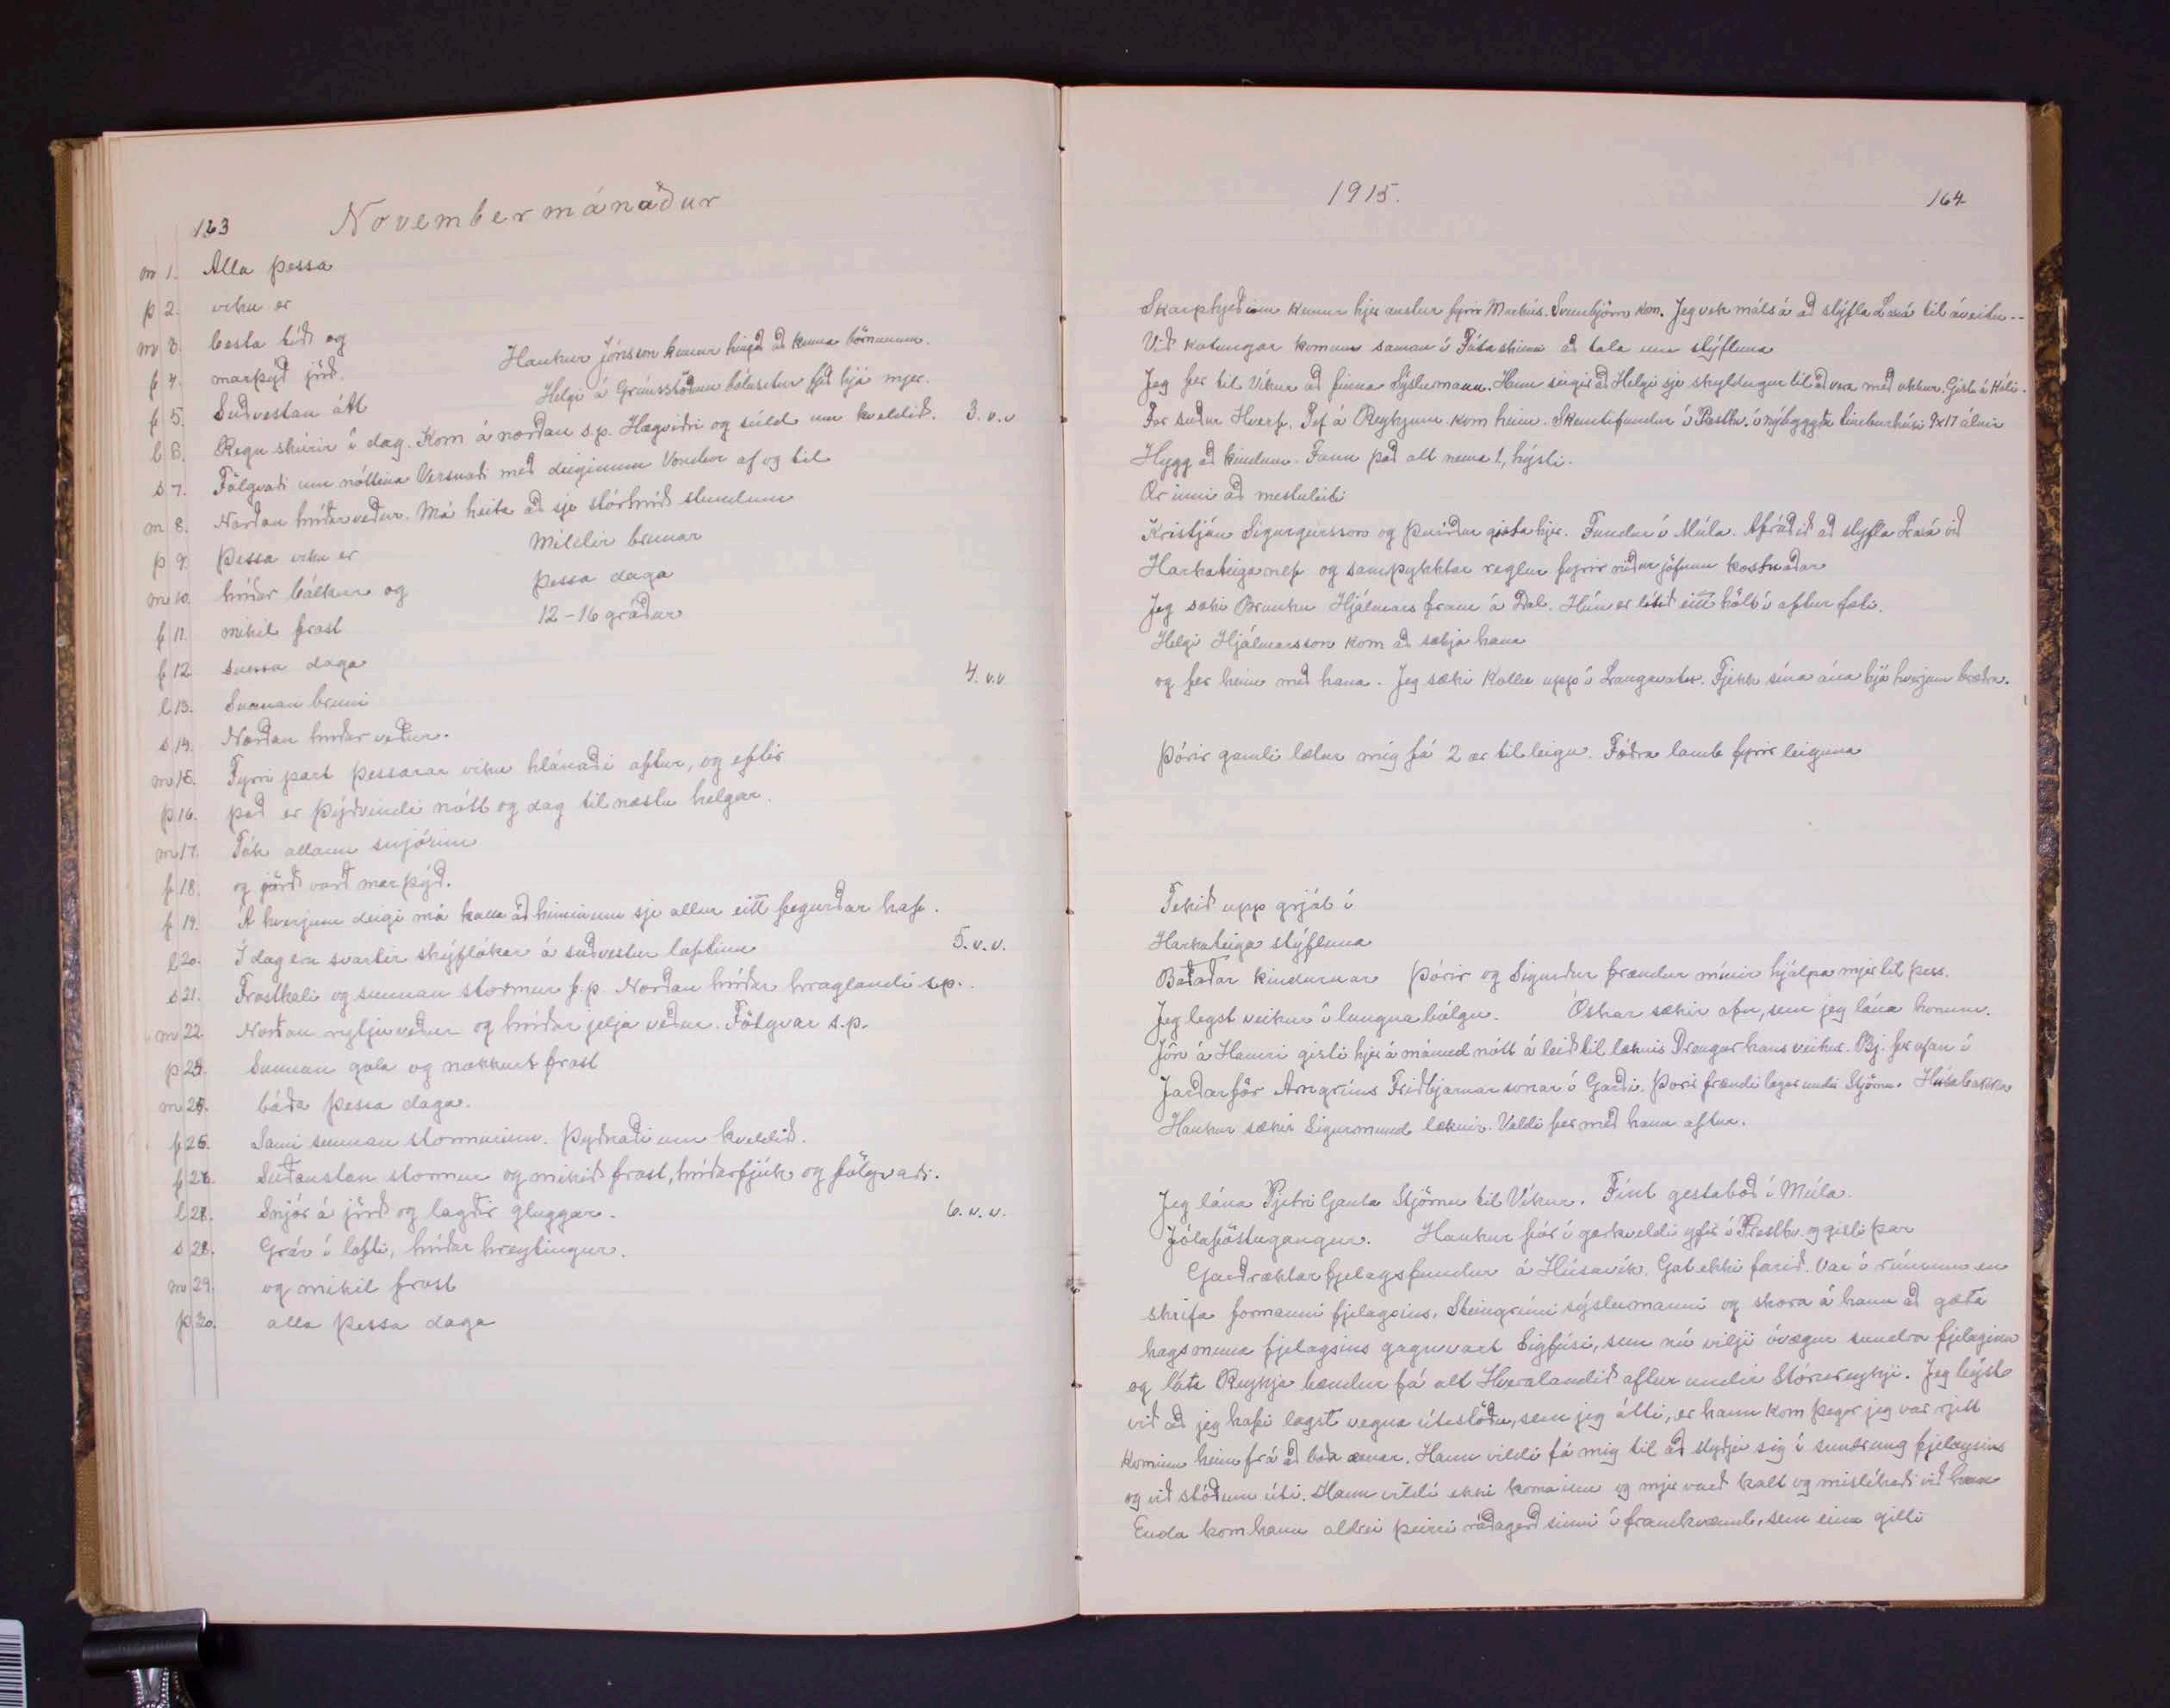 163 Novembermánaður
m 1. Alla þessa
þ 2. viku er
m 3. besta tíð og
f 4. marþýð jörð. Haukur Jónsson kemur hingað að kenna börnunum.
f 5. Suðvestan átt Helgi á Grímsstöðum bólusetur fjeð hjá mjer.
l 6. Regn skúrir í dag. Kom á norðan s.p. Hægviðri og súld um kveldið. 3. v.v
s 7. Fölgvaði um nóttina Versnaði með deiginum Vondur af og til
m 8. Norðan hríðarveður. Má heita að sje stórhríð stundum
þ 9. Þessa viku er Mildir brunar
m 10. hríðar bálkur og þessa daga
f 11. mikil frost 12-16 gráður
f 12. suma daga
l 13. Sunnan bruni 4. v.v.
s 14. Norðan hríðar veður.
m 15. Fyrri part þessarar viku hlánaði aftur, og eftir
þ 16. það er þýðvindi nótt og dag til næstu helgar.
m 17. Tók allann snjóinn
f 18. og jörð varð marþýð.
f 19. Á hverjum deigi má kalla að himininn sje allur eitt fegurðar haf.
l 20. Í dag eru svartir skýflókar á suðvestur loftinu 5. v.v.
s 21. Frostkali og sunnan stormur f.p. Norðan hríðar hraglandi s.p.
m 22. Norðan rylju veður og hríðar jelja veður. Fölgvar s.p.
þ 23. Sunnan gola og nokkurt frost
m 24. báða þessa daga.
f 25. Sami sunnan stormurinn. Þyðnaði um kveldið.
f 26. Suðaustan stormur og mikið frost, hríðarfjúk og fölgvaði.
l 27. Snjór á jörð og lagðir gluggar. 6. v.v.
s 28. Grár í lofti, hríðar hreytingur.
m 29. og mikil frost
þ 30. alla þessa daga
1915. 164
Skarphjeðinn kemur hjer austur fyrir Markús. Sveinbjörn kom. Jeg vek máls á að stýfla Laxá til áveitu --
Við Kotungar komum saman í Fótaskinni að tala um stýfluna
Jeg fer til Víkur að finna Sýslumann. Hann seigir að Helgi sje skyldugur til að vera með okkur. Gisti á Hóli.
For suður Hverf. Tef á Reykjum kom heim. Skemtifundur í Presthv. í nýbyggðu timburhúsi 9x17 álnir
Hygg að kindum. Fann það alt nema 1, hýsti.
Ær inni að mestuleiti
Kristján Sigurgeirsson og Þuríður gista hjer. Fundur í Múla. Afráðið að stýfla Laxá við
Harkateiganef og samþykktar reglur fyrir niður jöfnun kostnaðar
Jeg sæki Brunku Hjálmars fram á Dal. Hún er lítið eitt hölt í aftur fæti.
Helgi Hjálmarsson kom að sækja hana
og fer heim með hana. Jeg sæki Kollu upp í Langavatn. Fjekk sína ána hjá hverjum bræðra.
Þórir gamli lætur mig fá 2 ær til leigu. Fóðra lamb fyrir leiguna
Tekið upp grjót í
Harkateiga stýfluna
Baðaðar kindurnar Þórir og Sigurður frændur mínir hjálpa mjer til þess.
Jeg legst veikur í lungna bólgu. Óskar sækir ofn, sem jeg lána honum.
Jón á Hamri gisti hjer á mánud nótt á leið til læknis Drengur hans veikur. Bj. fer ofan í
Jarðarför Arngríms Friðbjarnar sonar í Garði. Þórir frændi lagar undir Stjörnu. Húsabakka
Haukur sækir Sigurmund læknir. Valdi fer með hann aftur.
Jeg lána Pjetri Gauta Stjörnu til Víkur. Fínt gestaboð í Múla.
Jólaföstugangur. Haukur fór í gærkveldi yfir í Presthv. og gisti þar
Garðræktar fjelagsfundur á Húsavík. Gat ekki farið. Var í rúminu en
skrifa formanni fjelagsins, Steingrími sýslumanni og skora á hann að gæta
hagsmuna fjelagsins gagnvart Sigfúsi, sem nú vilji óvægur sundra fjelaginu
og láta Reykja bændur fá alt Hveralandið aftur undir Stórureykji. Jeg býst
við að jeg hafi lagst vegna útistöðu, sem jeg átti, er hann kom þegar jeg var rjett
kominn heim frá að baða ærnar. Hann vildi fá mig til að styðja sig í sundrung fjelagsins
og við stóðum úti. Hann vildi ekki koma inn og mjer varð kalt og mislíkaði við hann
Enda kom hann aldrei þeirri ráðagerð sinni í framkvæmd, sem einu gilti